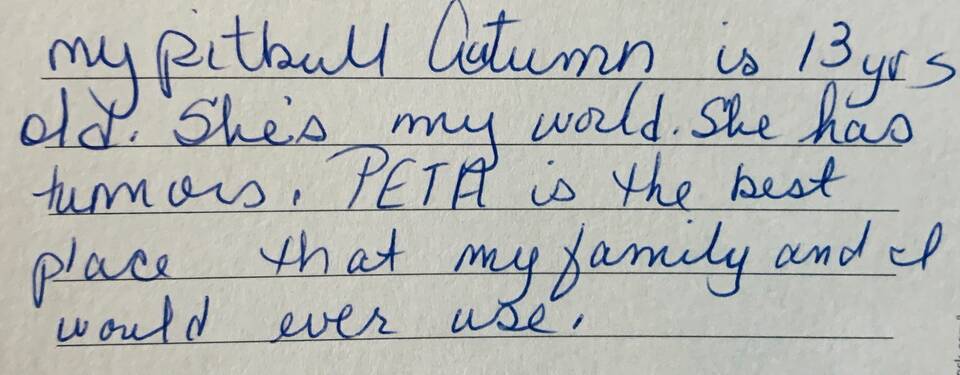 my pitbull Autumn is 13 yrs
old. She's my world. She has
tumors. PETA is the best
place that my family and I
would ever use.